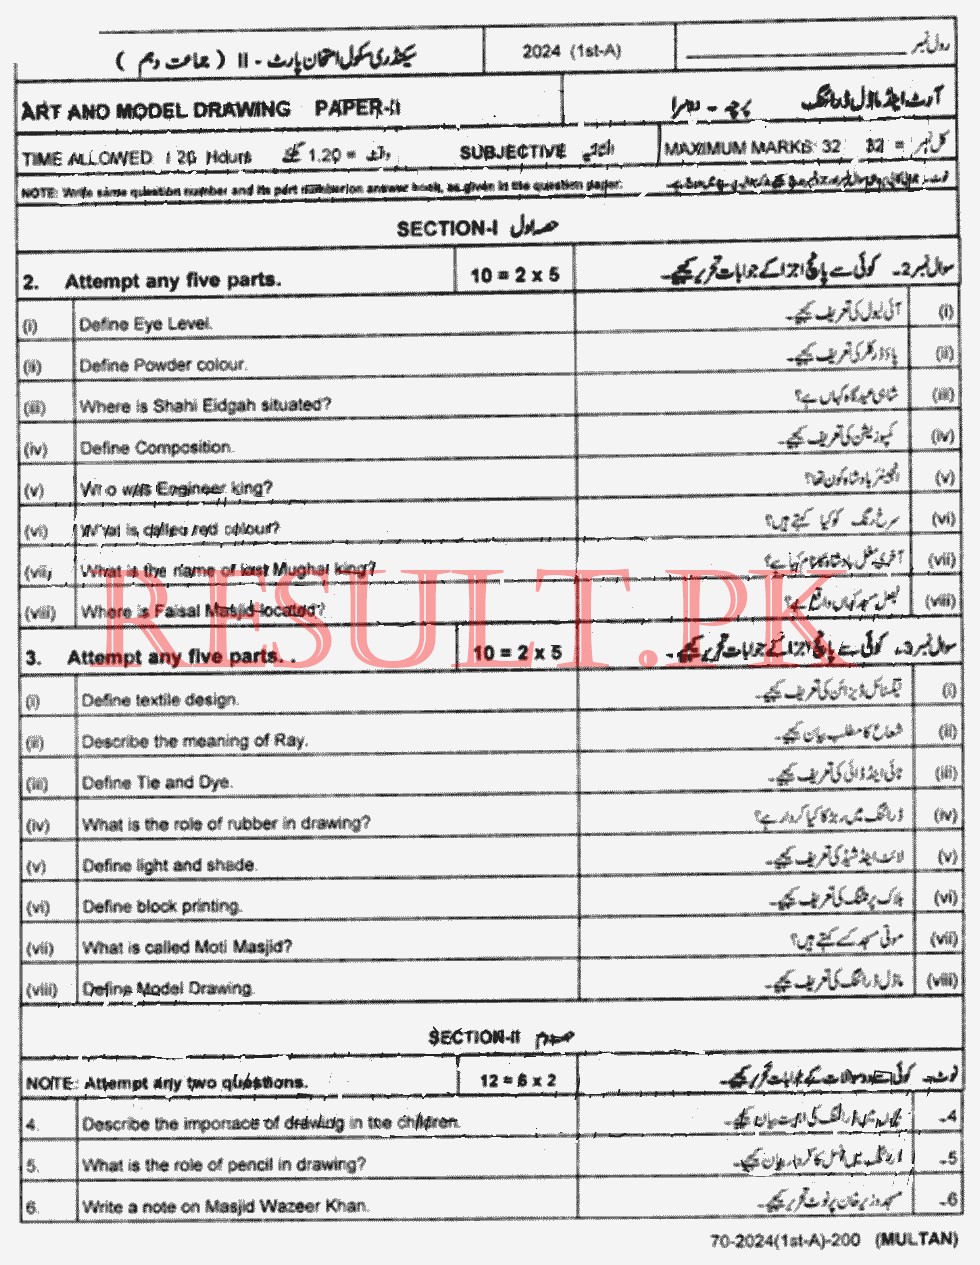 سیکنڈری سکول امتحان پارٹ - II ( جماعت دہم ) 2024 (1st-A) رول نمبر
ART AND MODEL DRAWING PAPER-II پرچہ - دوسرا آرٹ اینڈ ماڈل ڈرائنگ
TIME ALLOWED 1.20 Hours وقت = 1.20 گھنٹے SUBJECTIVE انشائیہ MAXIMUM MARKS: 32 کل نمبر = 32
NOTE: Write same question number and its part number on answer book, as given in the question paper.
SECTION-I حصہ اول
2. Attempt any five parts. 10 = 2 x 5 سوال نمبر 2۔ کوئی سے پانچ اجزا کے جوابات تحریر کیجیے۔
(i) Define Eye Level. آئی لیول کی تعریف کیجیے۔ (i)
(ii) Define Powder colour. پاؤڈر کلر کی تعریف کیجیے۔ (ii)
(iii) Where is Shahi Eidgah situated? شاہی عیدگاہ کہاں ہے؟ (iii)
(iv) Define Composition. کمپوزیشن کی تعریف کیجیے۔ (iv)
(v) Who was Engineer king? انجینئر بادشاہ کون تھا؟ (v)
(vi) What is called red colour? سرخ رنگ کو کیا کہتے ہیں؟ (vi)
(vii) What is the name of last Mughal king? آخری مغل بادشاہ کا نام کیا ہے؟ (vii)
(viii) Where is Faisal Masjid located? فیصل مسجد کہاں واقع ہے؟ (viii)
RESULT.PK
3. Attempt any five parts. . 10 = 2 x 5 سوال نمبر 3۔ کوئی سے پانچ اجزا کے جوابات تحریر کیجیے۔
(i) Define textile design. ٹیکسٹائل ڈیزائن کی تعریف کیجیے۔ (i)
(ii) Describe the meaning of Ray. شعاع کا مطلب بیان کیجیے۔ (ii)
(iii) Define Tie and Dye. ٹائی اینڈ ڈائی کی تعریف کیجیے۔ (iii)
(iv) What is the role of rubber in drawing? ڈرائنگ میں ربڑ کا کیا کردار ہے؟ (iv)
(v) Define light and shade. لائٹ اینڈ شیڈ کی تعریف کیجیے۔ (v)
(vi) Define block printing. بلاک پرنٹنگ کی تعریف کیجیے۔ (vi)
(vii) What is called Moti Masjid? موتی مسجد کسے کہتے ہیں؟ (vii)
(viii) Define Model Drawing. ماڈل ڈرائنگ کی تعریف کیجیے۔ (viii)
SECTION-II حصہ دوم
NOTE: Attempt any two questions. 12 = 6 x 2 نوٹ۔ کوئی سے دو سوالات کے جوابات تحریر کیجیے۔
4. Describe the imporace of drawing in the children. بچوں میں ڈرائنگ کی اہمیت بیان کیجیے۔ -4
5. What is the role of pencil in drawing? ڈرائنگ میں پنسل کا کردار بیان کیجیے۔ -5
6. Write a note on Masjid Wazeer Khan. مسجد وزیر خان پر نوٹ تحریر کیجیے۔ -6
70-2024(1st-A)-200 (MULTAN)